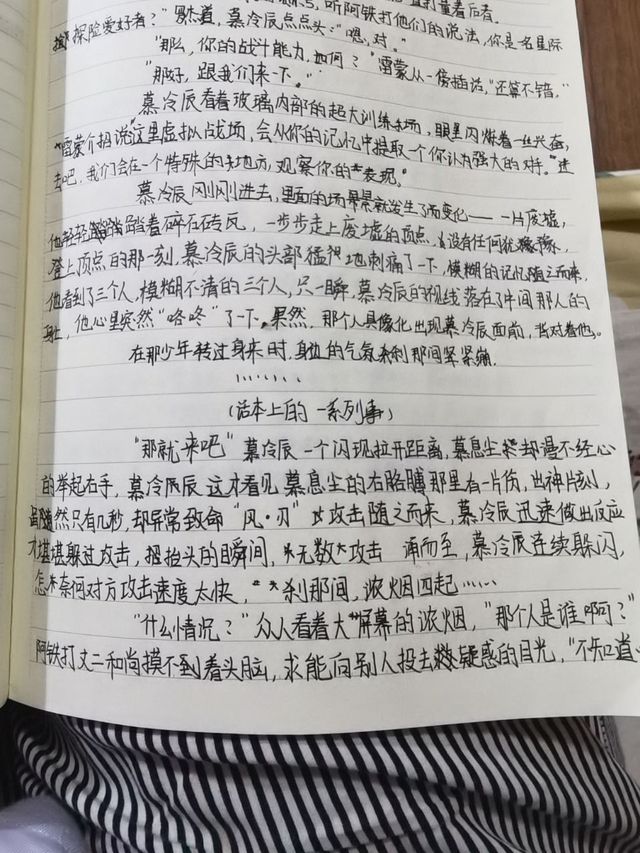 打量着后者。
探险爱好者？”男末道，慕冷辰点点头：“嗯，对。”，听阿铁打他们的说法，你是名星际
“那么，你的战斗能力如何？”雷蒙从一傍插话，“还算不错。”
“那好，跟我们来一下。”
慕冷辰看着玻璃内部的超大训练场，眼里闪烁着一丝兴奋，
“雷蒙介绍说这里虚拟战场，会从你的记忆中提取一个你认为强大的对手。”进
去吧，我们会在一个特殊的地方，观察你的表现。”
慕冷辰刚刚进去，里面的场景就发生了变化——一片废墟，
他轻轻踏着碎石砖瓦，一步步走上废墟的顶点，没有任何犹豫，
登上顶点的那一刻，慕冷辰的头部猛地刺痛了一下，模糊的记忆随之而来，
他看到了三个人，模糊不清的三个人，只一瞬，慕冷辰的视线落在了中间那人的
身上，他心里突然“咯咚”了一下，果然，那个人具像化出现慕冷辰面前，背对着他。
在那少年转过身来时，身边的气氛刹那间紧紧绷。
………
（话本上的一系列事）
“那就来吧”慕冷辰一个闪现拉开距离，慕息尘却漫不经心
的举起右手，慕冷辰这才看见慕息尘的右胳膊那里有一片伤，出神片刻，
虽然只有几秒，却异常致命“风·刃”攻击随之而来，慕冷辰迅速做出反应
才堪堪躲过攻击，抬头的瞬间，无数攻击涌而至，慕冷辰连续躲闪，
怎奈何对方攻击速度太快，刹那间，浓烟四起……
“什么情况？”众人看着大屏幕的浓烟，“那个人是谁啊？”
阿铁打丈二和尚摸不到着头脑，求能向别人投去疑惑的目光，“不知道，